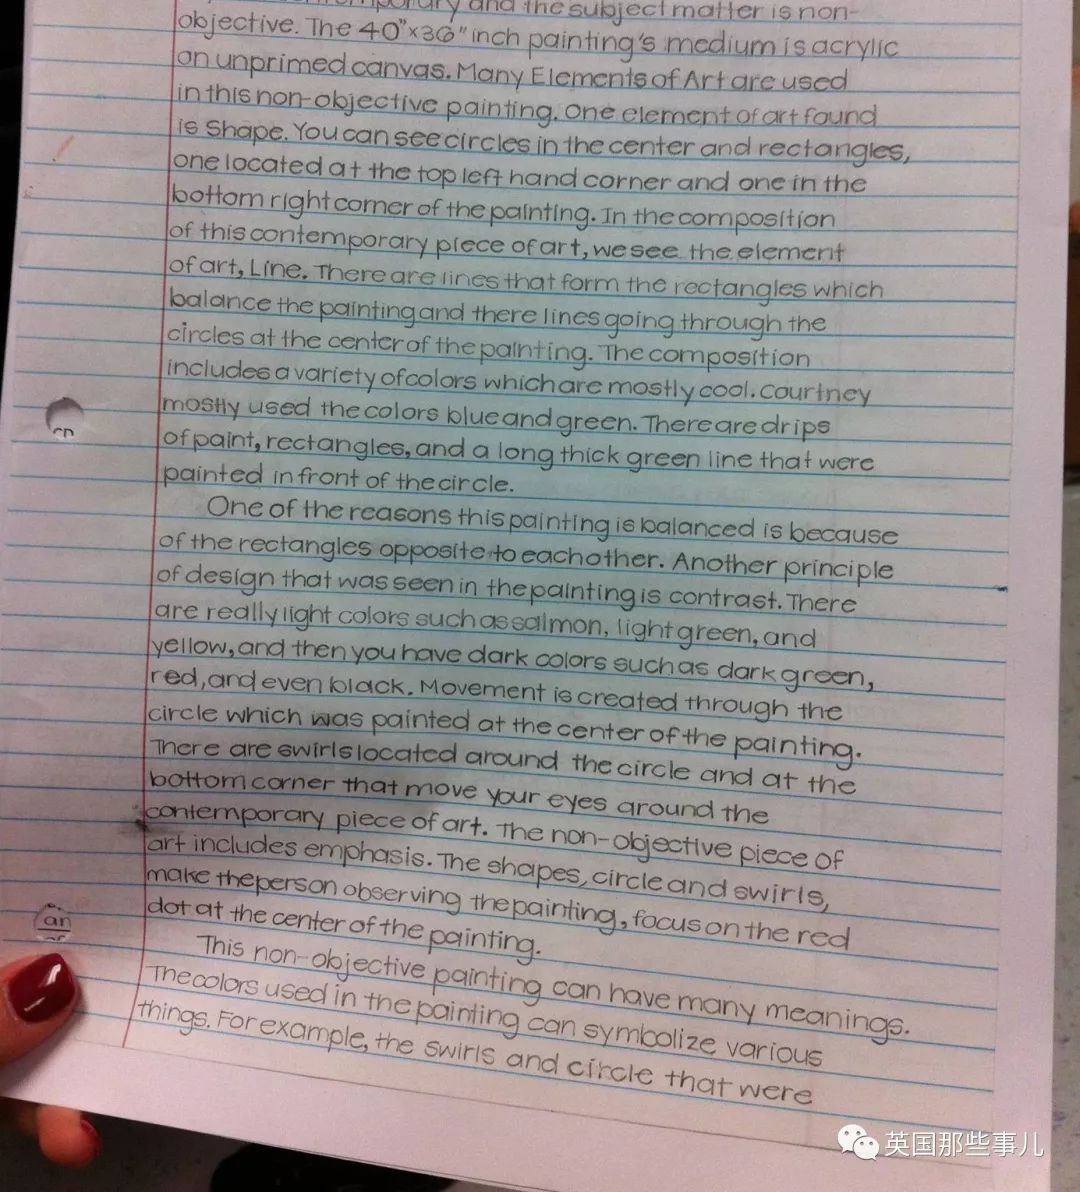 and the subject matter is non-
objective. The 40"x36" inch painting's medium is acrylic
on unprimed canvas. Many Elements of Art are used
in this non-objective painting. One element of art found
is Shape. You can see circles in the center and rectangles,
one located at the top left hand corner and one in the
bottom right corner of the painting. In the composition
of this contemporary piece of art, we see the element
of art, Line. There are lines that form the rectangles which
balance the painting and there lines going through the
circles at the center of the painting. The composition
includes a variety of colors which are mostly cool. Courtney
mostly used the colors blue and green. There are drips
of paint, rectangles, and a long thick green line that were
painted in front of the circle.
One of the reasons this painting is balanced is because
of the rectangles opposite to each other. Another principle
of design that was seen in the painting is contrast. There
are really light colors such as salmon, light green, and
yellow, and then you have dark colors such as dark green,
red, and even black. Movement is created through the
circle which was painted at the center of the painting.
There are swirls located around the circle and at the
bottom corner that move your eyes around the
contemporary piece of art. The non-objective piece of
art includes emphasis. The shapes, circle and swirls,
make the person observing the painting, focus on the red
dot at the center of the painting.
This non-objective painting can have many meanings.
The colors used in the painting can symbolize various
things. For example, the swirls and circle that were
an
英国那些事儿